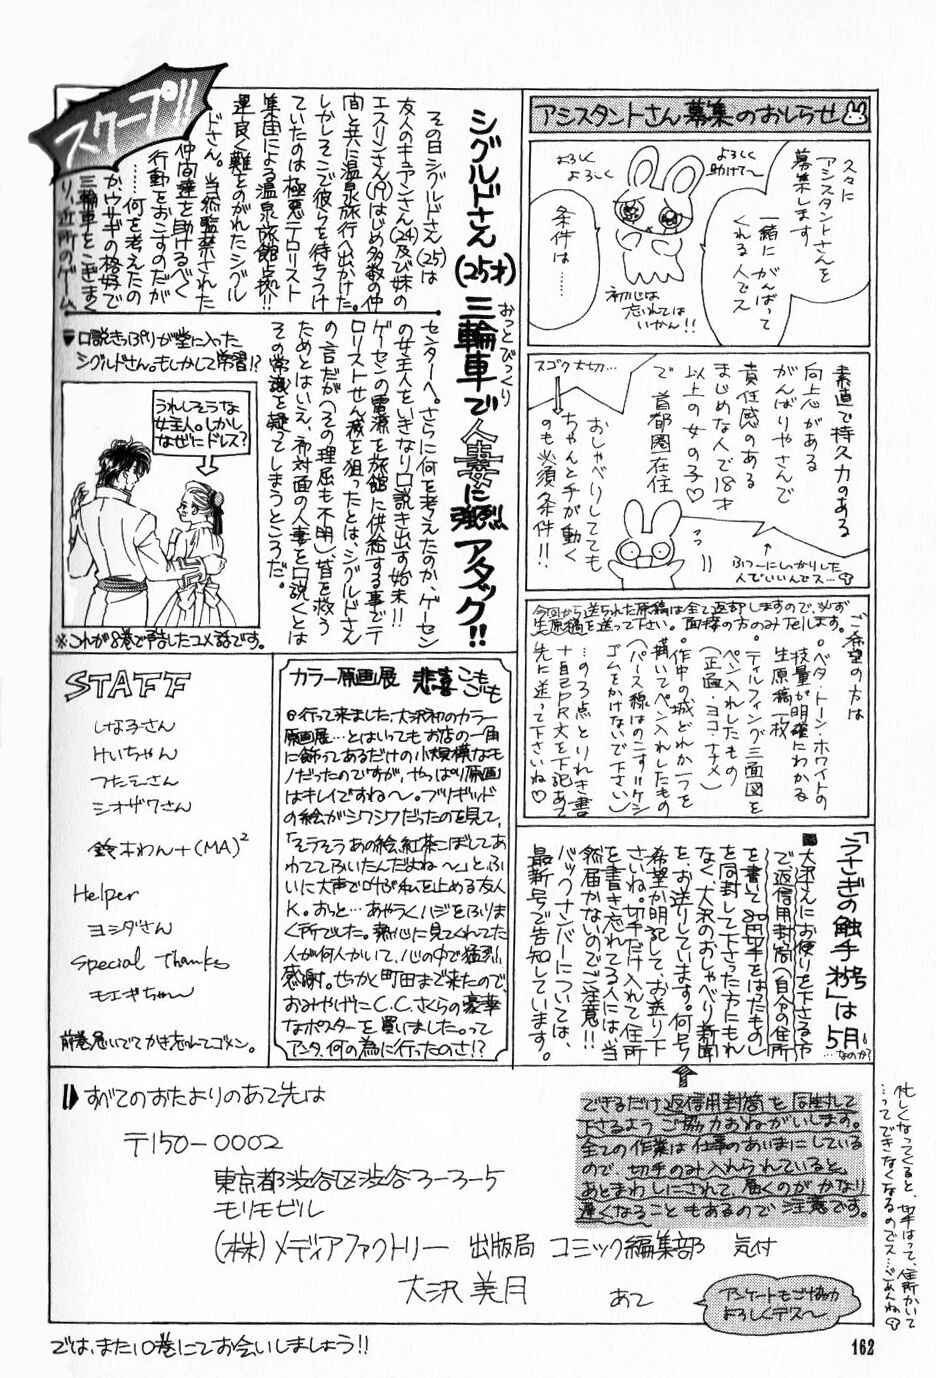 アシスタントさん募集のおしらせ
久々に
アシスタントさんを
募集します
一緒にがんばって
くれる人でス
よろしく
助けて〜
よろしく
よろしく
初心は
忘れては
いかん!!
条件は……
素直で持久力のある
向上心がある
がんばりやさんで
責任感のある
まじめな人で18才
以上の女の子♡
で首都圏在住
スゴク大切…
おしゃべりしてても
ちゃんと手が動く
のも必須条件!!
ふつーにしっかりした
人でいいんでス…
今回から送られた原稿は全て返却しますので、必ず
生原稿を送って下さい。面接の方のみTelします。
ご希望の方は
◦ベタ・トーン・ホワイトの
技量が明確にわかる
生原稿一枚
◦ティルフィング三面図を
ペン入れしたもの
(正面・ヨコ・ナナメ)
◦作中の城どれか一つを
描いてペン入れしたもの
(パース線はのこす‖ケシ
ゴムをかけないで下さい)
…の3点とりれき書
+自己PR文を下記あて
先に送って下さいね♡
スクープ!!
シグルドさん(25才)三輪車で人妻に強烈アタック!!
おっとびっくり
その日シグルドさん(25)は
友人のキュアンさん(24)及び妹の
エスリンさん(19)はじめ多数の仲
間と共に温泉旅行へ出かけた。
しかしそこで彼らを待ちうけ
ていたのは極悪テロリスト
集団による温泉旅館占拠!!
運良く難をのがれたシグル
ドさん。当然監禁された
仲間達を助けるべく
行動をおこすのだが
……何を考えたの
かウサギの格好で
三輪車をこぎまく
り、近所のゲーム
センターへ。さらに何を考えたのか、ゲーセン
の女主人をいきなり口説き出す始末!!
ゲーセンの電源を旅館に供給する事でテ
ロリストせん滅を狙ったとは、シグルドさん
の言だが(その理屈も不明)、皆を救う
ためとはいえ、初対面の人妻を口説くとは
その常識を疑ってしまうところだ。
▼口説きっぷりが堂に入った
シグルドさん。もしかして学習!?
うれしそうな
女主人。しかし
なぜにドレス?
※これが8巻で予告したコメ話です。
STAFF
しな子さん
けいちゃん
つたえさん
シオザワさん
鈴木わん+(MA)²
Helper
ヨシダさん
Special Thanks
モエギちゃ〜ん
前巻急いでてかき忘れてゴメン。
カラー原画展 悲喜こもごも
◎行って来ました、大沢初のカラー
原画展…とはいってもお店の一角
に飾ってあるだけの小規模なモ
ノだったのですが、やっぱり原画
はキレイですね〜。ブリギッド
の絵がシワシワだったのを見て、
「そうそうあの絵、紅茶こぼしてあ
わててふいたんだよね〜」と、ふ
いに大声で叫ぶ私を止める友人
K。おっと…あやうくハジをふりま
く所でした。熱心に見てくれてた
人が何人かいて、心の中で猛烈
感謝。せっかく町田まで来たので、
おみやげにC.C.さくらの豪華
なポスターを買いました。って
アンタ、何の為に行ったのさ!?
「うさぎの触手 9号」は5月
…なのか?
■大沢さんにお便りを下さる方
で、返信用封筒(自分の住所
を書いて80円切手をはったもの)
を同封して下さった方にもれ
なく大沢のおしゃべり新聞
を、お送りしています。何号
希望か明記して、お送り下
さいね。切手だけ入れて住所
を書き忘れてる人には、当
然届かないのでご注意!!
バックナンバーについては、
最新号で告知しています。
できるだけ返信用封筒を同封して
下さるようご協力おねがいします。
全ての作業は仕事のあいまにしている
ので、切手のみ入れられていると、
あとまわしにされて、届くのがかなり
遅くなることもあるので注意です。
忙しくなってくると、切手はって、住所かいて
…ってできなくなるのでス…ごめんね
すべてのおたよりのあて先は
〒150-0002
東京都渋谷区渋谷3-3-5
モリモビル
(株)メディアファクトリー 出版局 コミック編集部 気付
大沢美月 あて
アンケートもご協力
よろしくデス〜
では、また10巻にてお会いしましょう!!
162